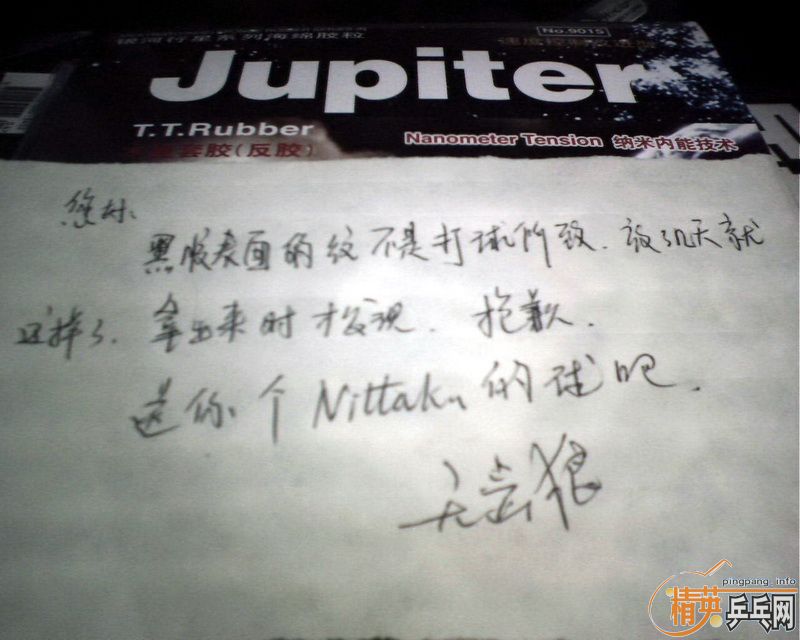 银河行星系列海绵胶粒
No.9015
Jupiter
T.T.Rubber
套胶(反胶)
Nanometer Tension 纳米内能技术
您好、
黑胶表面的纹不是打球所致.放几天就
这样了.拿出来时才发现.抱歉.
送你个Nittaku的球吧.
狼
pingpang.info
精英乒乓网